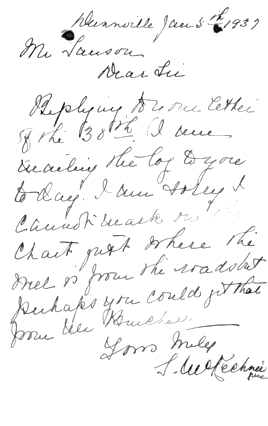 Dunnville Jan 5th 1937
Mr Sanson
Dear Sir
Replying to your letter
of the 30th. I am
mailing the log to you
to day. I am sorry I
cannot mark on the
chart just where the
well is from the roads but
perhaps you could get that
from Mr
Yours Truly
S. McKechnie